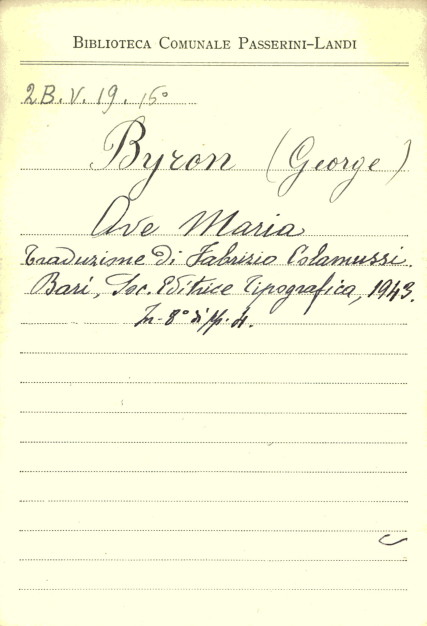 BIBLIOTECA COMUNALE PASSERINI-LANDI
2B.V.19.15°
Byron (George)
Ave Maria
Traduzione di Fabrizio Colamussi.
Bari, Soc. Editrice Tipografica, 1943.
In-8° di pp. 4.